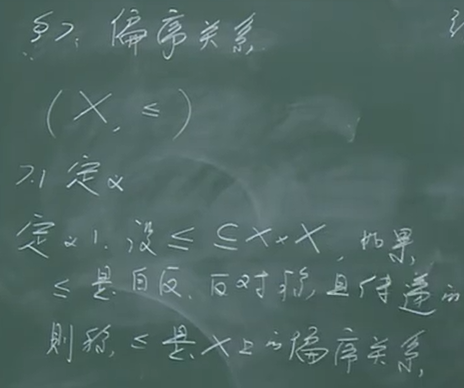 §7. 偏序关系
(X, ≤)
7.1 定义
定义1. 设 ≤ ⊆ X×X, 如果
≤ 是自反、反对称且传递的
则称 ≤ 是X上的偏序关系